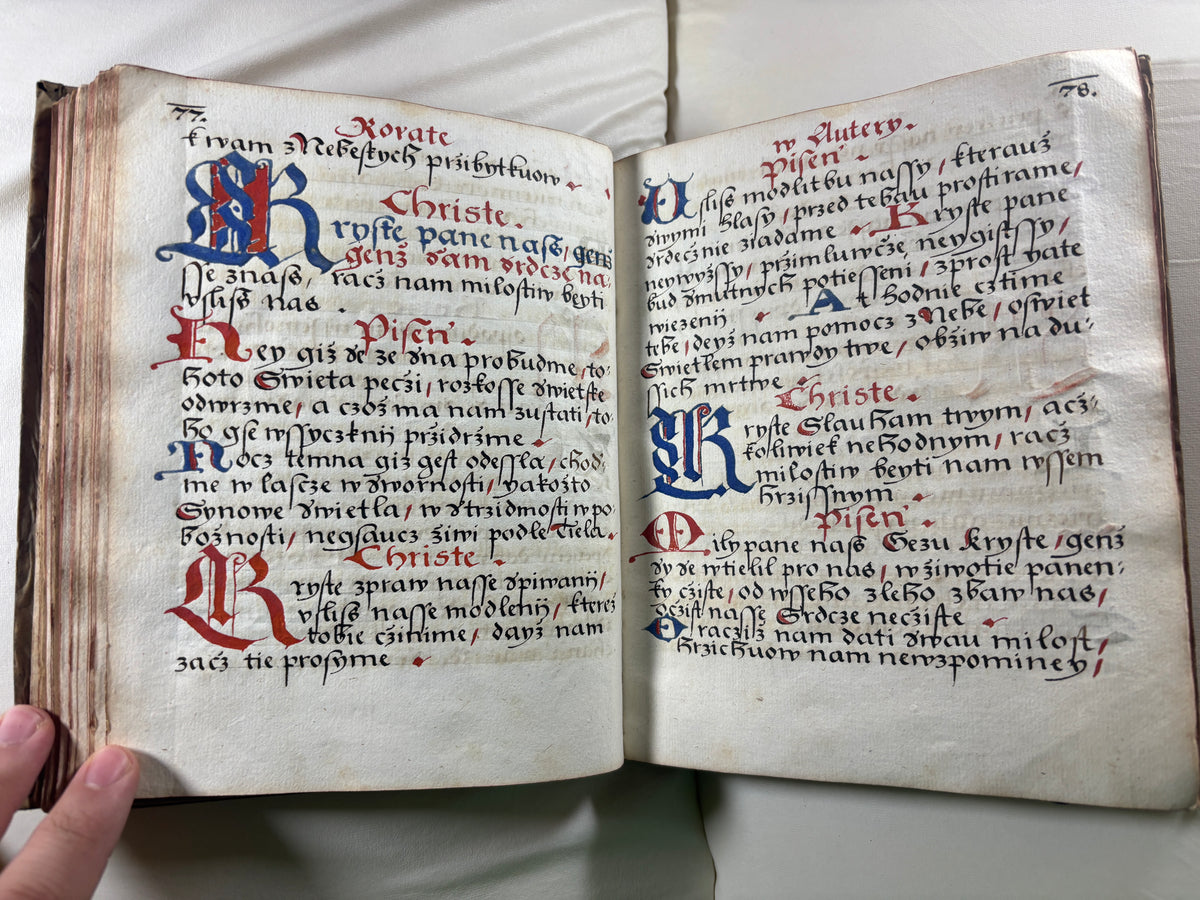 77.
Rorate
k wam z Nebeskych przibytkuow
Christe.
Kryste pane nass, genž
genž dam srdcze na
sse znass, racž nam milostiw beyti
vsliss nas.
Pisen.
Hey giž se ze sna probudme, to-
hoto Swieta peczi, rozkosse swietske
odwrzme, a czož ma nam zustati, to-
ho gse wssyczknij przidržme.
Nocz temna giž gest odessla, chod-
me w lascze w stwornosti, yakožto
Synowe swietla, w strzidmosti w po-
božnosti, negsaucz žiwi podle Tiela.
Christe.
Kryste zpraw nasse spiwanij,
vsliss nasse modlenij, kterež
tobie cžinime, dayž nam
zacž tie prosyme
78.
w Autery.
Pisen.
Usliss modlitbu nassy, kterauž
swymi hlasy, przed tebau prostirame,
srdecžnie žadame. Kryste pane
neywyžssy, przimluwcže neygistssy,
bud smutnych potiesseni, zprost yate
wiezenij. At hodnie cztime
tebe, deyž nam pomocz z Nebe, oswiet
Swietlem prawdy twe, obžiw na du-
ssich mrtwe
Christe.
Kryste Sluham twym, acž-
koliwiek nehodnym, racž
milostiw beyti nam wssem
hrzissnym.
Pisen.
Mily pane nass Gezu Kryste, genž
sy se wtielil pro nas, w žiwotie panen-
ky cžiste, od wsseho zleho zbaw nas,
ocžist nasse Srdcze necžiste
Oracziž nam dati swau milost,
hrzichuow nam newzpominey,